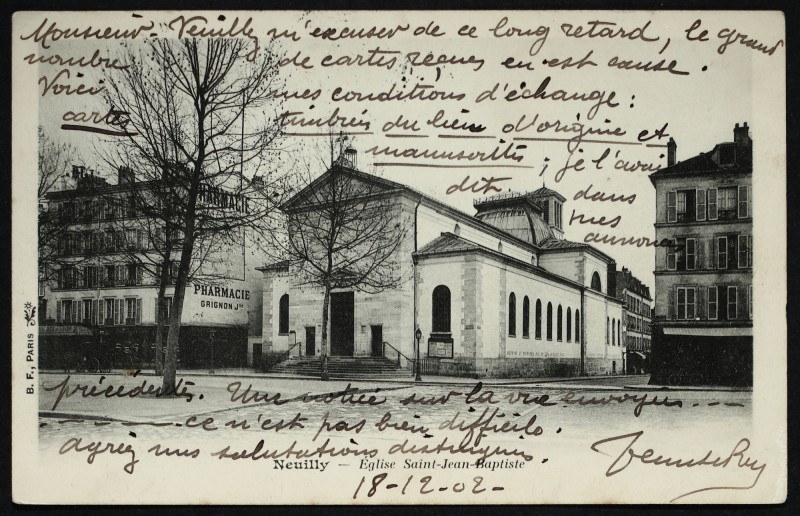 Monsieur. Veuillez m'excuser de ce long retard, le grand
nombre de cartes reçues en est cause.
Voici mes conditions d'échange :
cartes timbrés du lieu d'origine et
manuscrites ; je l'avais
dit dans
mes
annonces
PHARMACIE
PHARMACIE
GRIGNON Jne
B. F., PARIS
précédentes. Une notice sur la vue envoyée
ce n'est pas bien difficile.
agréez mes salutations distinguées.
Neuilly — Église Saint-Jean-Baptiste
18-12-02-